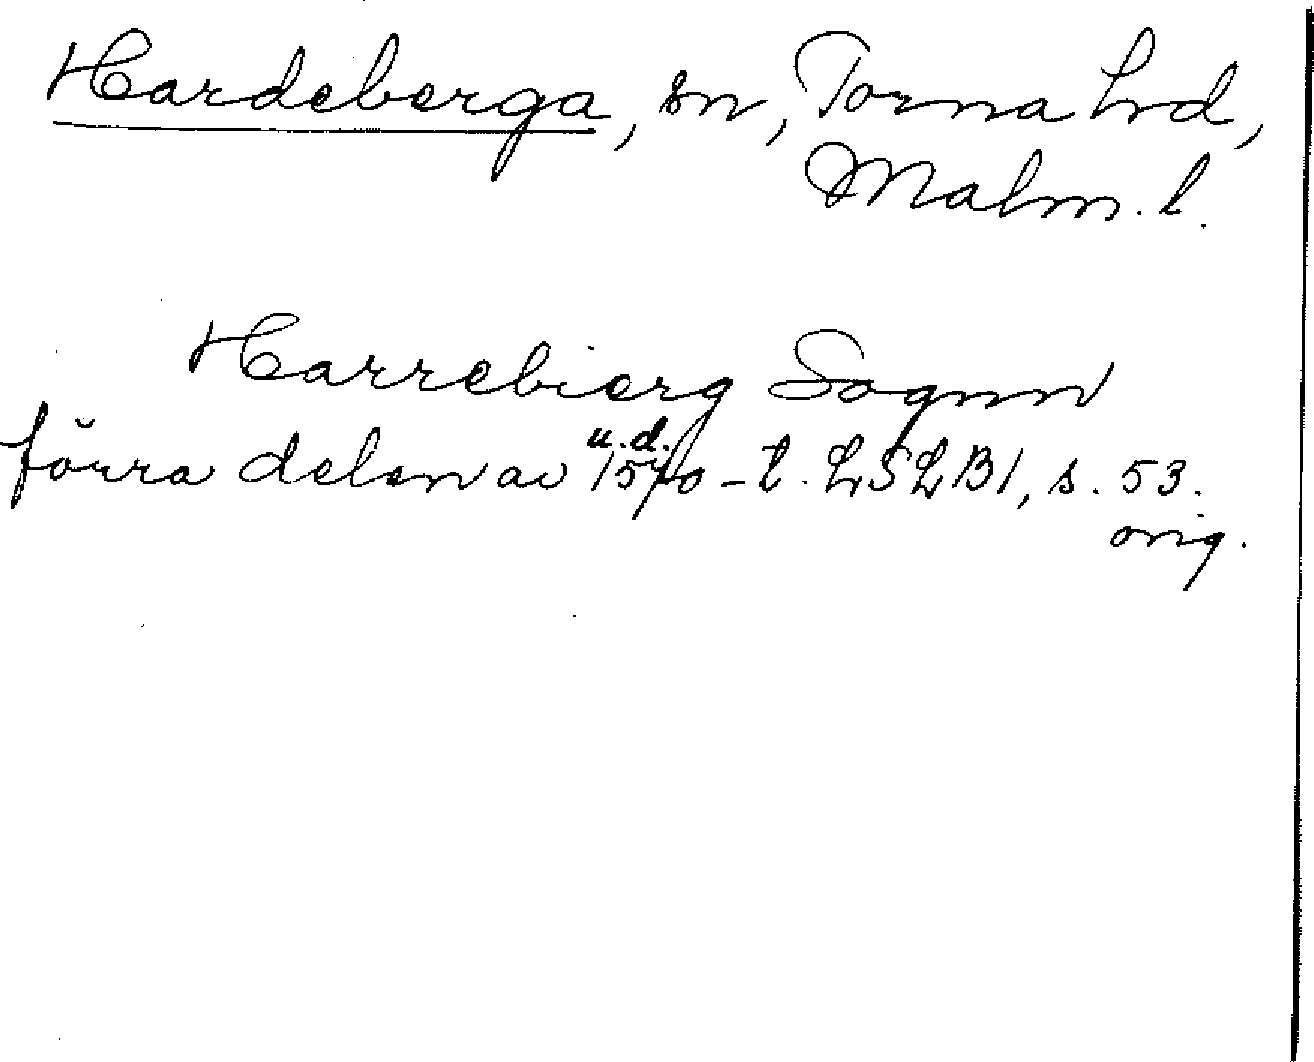 Hardeberga, sn, Torna hrd,
Malm. l.
Harrebierg Sognn
u. d.
förra delen av 1540-t. LSLB1, s. 53.
orig.